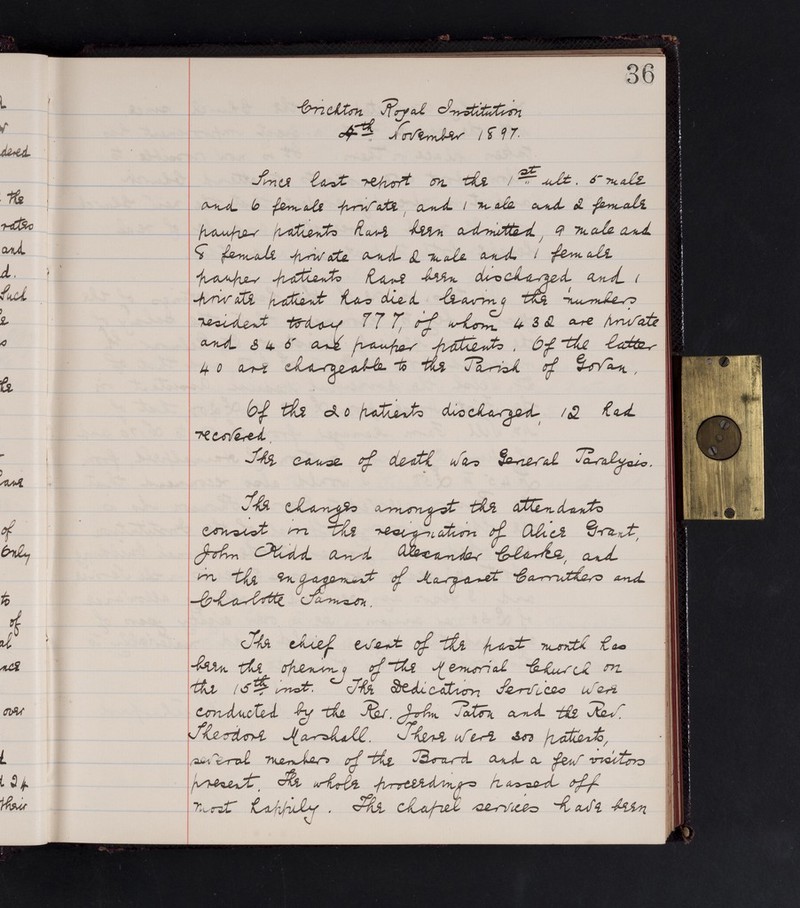 36
Crichton Royal Institution
4th November 1897.
Since last report on the 1st ult. 5 male
and 6 female private, and 1 male and 2 female
pauper patients have been admitted, 9 male and
8 female private and 2 male and 1 female
pauper patients have been discharged, and 1
private patient has died leaving the numbers
resident today 777, of whom 432 are private
and 345 are pauper patients. Of the latter
40 are chargeable to the Parish of Govan.
Of the 20 patients discharged, 12 had
recovered.
The cause of death was General Paralysis.
The changes amongst the attendants
consist in the resignation of Alice Grant,
John Kidd and Alexander Clarke, and
in the engagement of Margaret Carruthers and
Charlotte Samson.
The chief event of the past month has
been the opening of the Memorial Church on
the 15th inst. The Dedication Services were
conducted by the Rev. John Paton and the Rev.
Theodore Marshall. There were 300 patients,
several members of the Board and a few visitors
present. The whole proceedings passed off
most happily. The chapel services have been
dered
the
rates
and
d.
Such
of
only
to
of
over
24
their